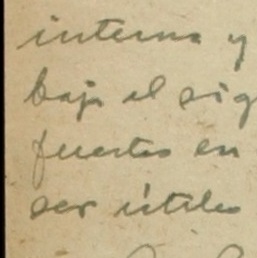 interna y
bajo el sig
fuertes en
ser útiles